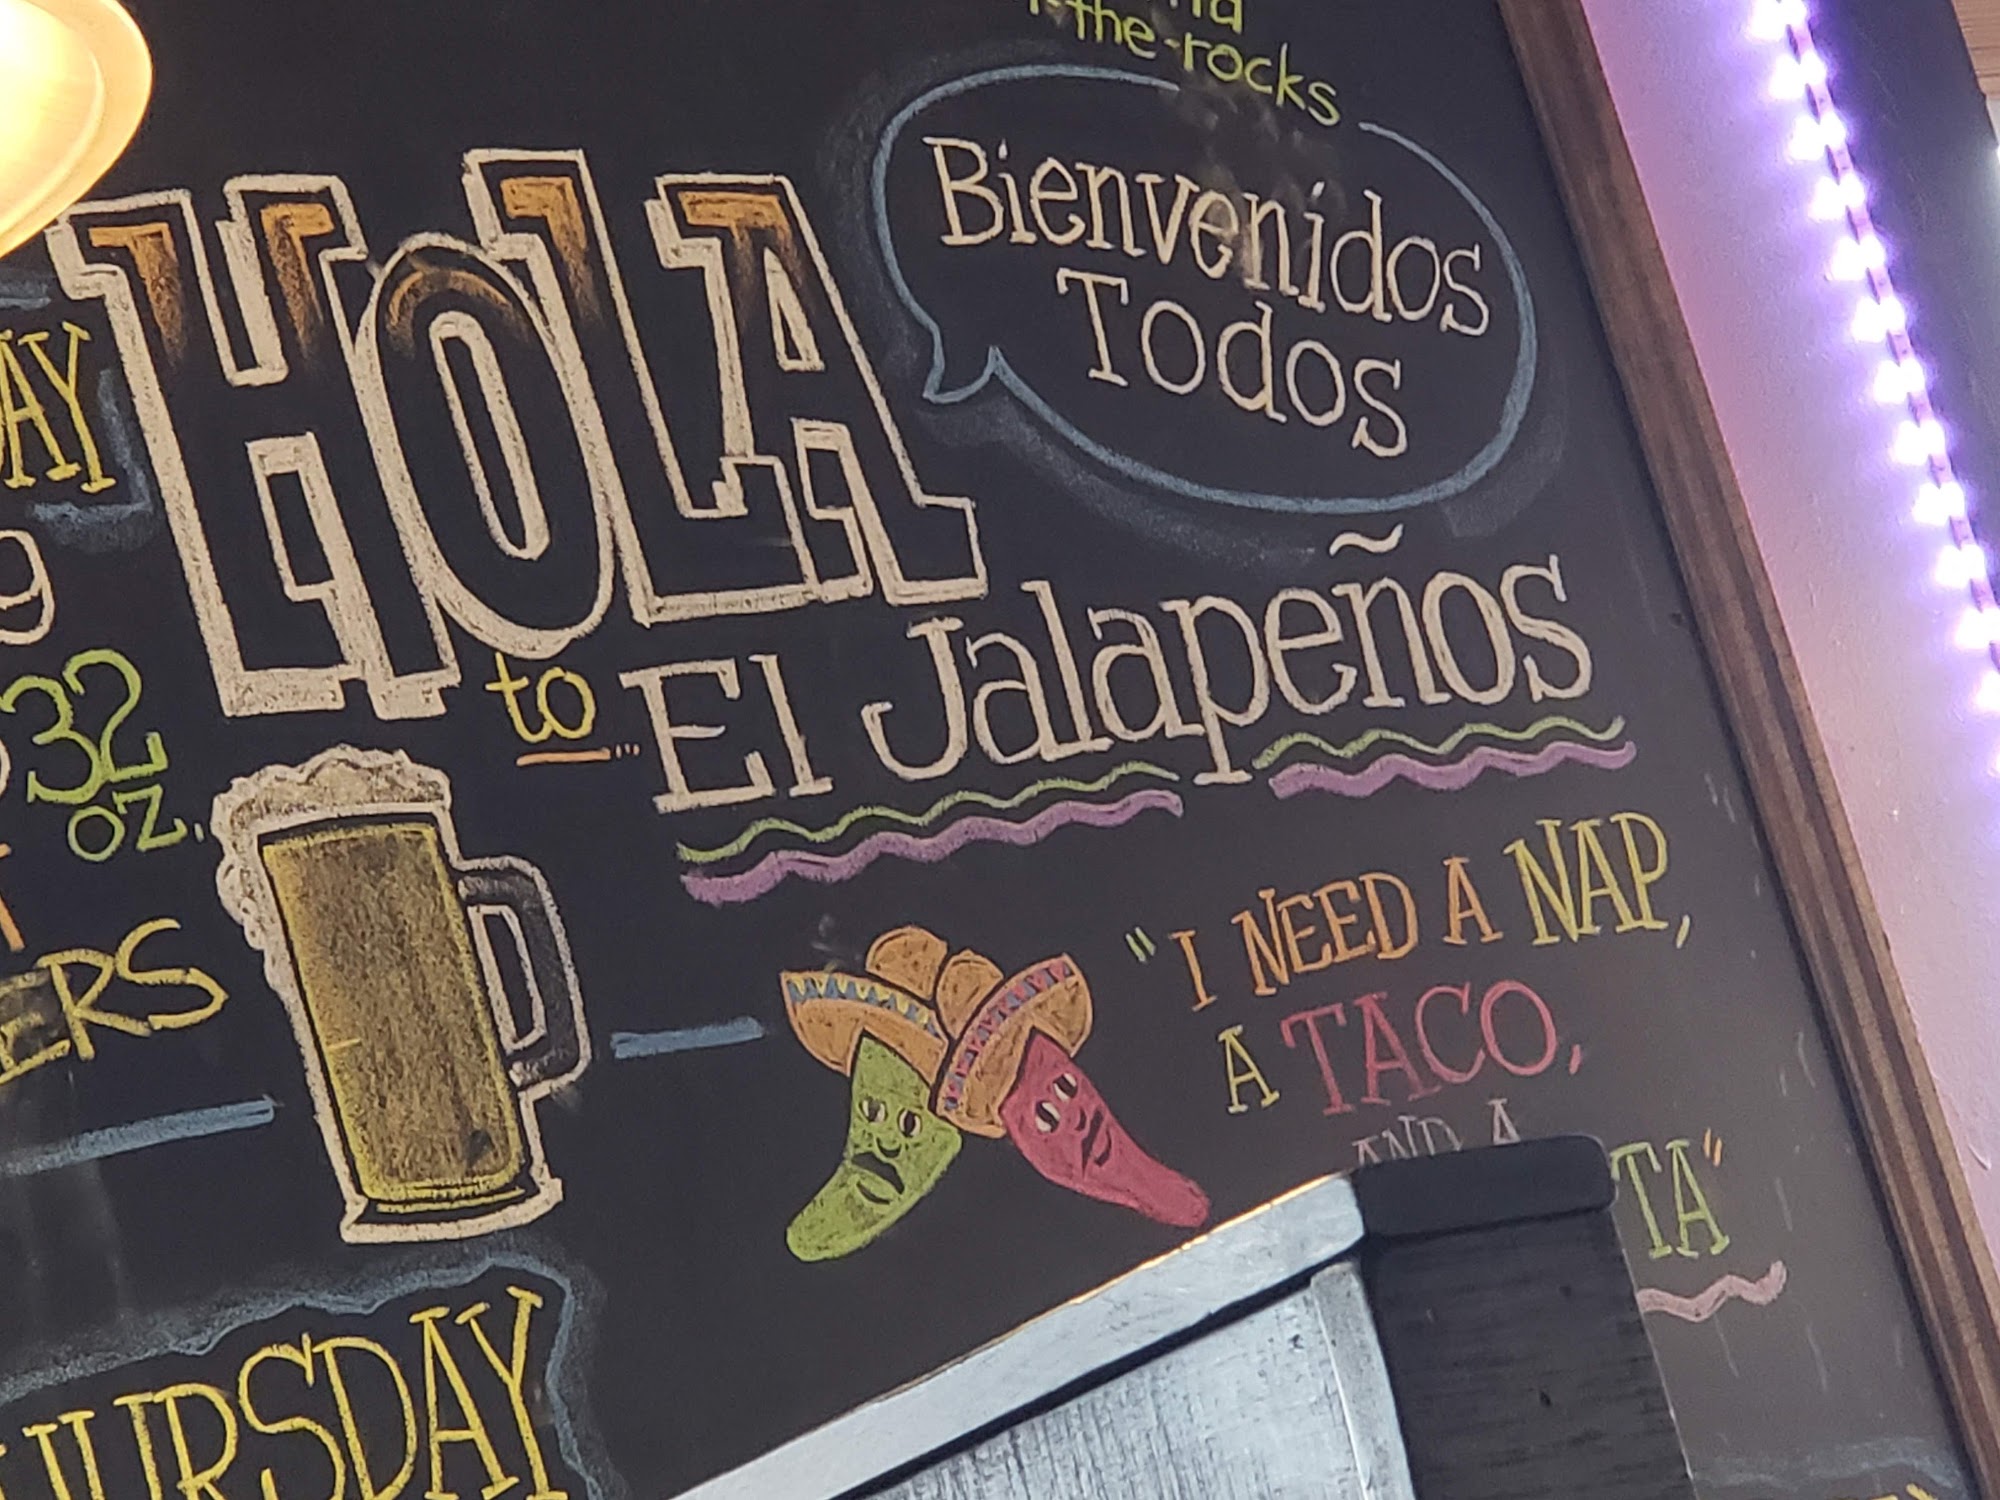 the-rocks
Bienvenidos
Todos
HOLA
to El Jalapeños
9
32
oz.
ERS
"I NEED A NAP,
A TACO,
AND A
TA"